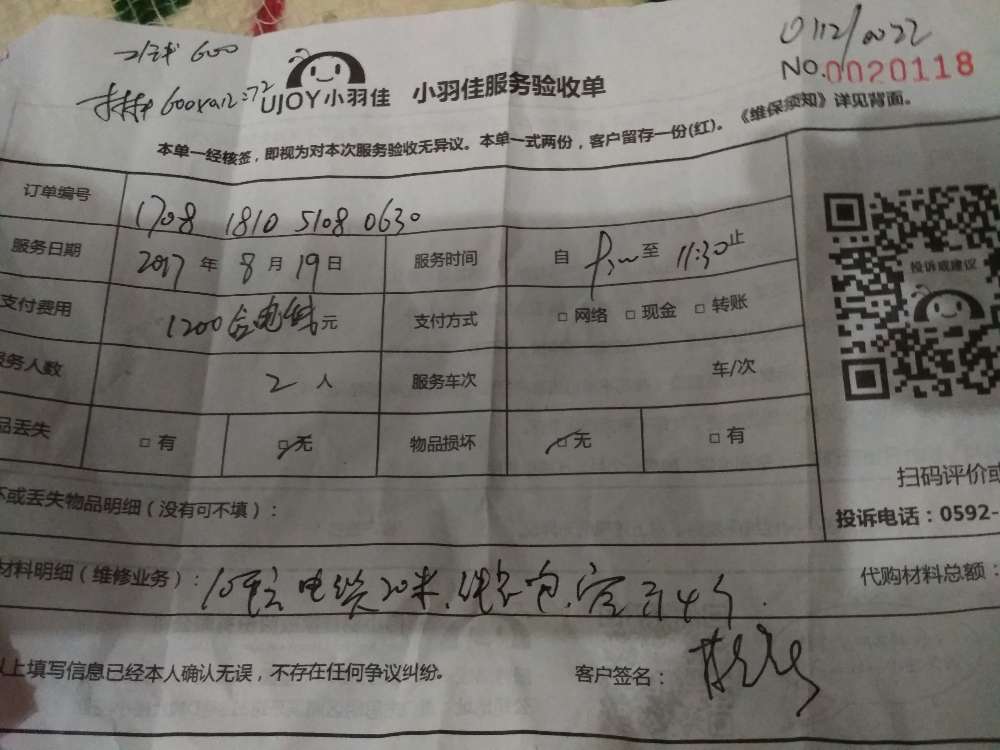 600
0112/0022
NO.0020118
600×0.12=72
UJOY小羽佳 小羽佳服务验收单
本单一经核签，即视为对本次服务验收无异议。本单一式两份，客户留存一份(红)。《维保须知》详见背面。
订单编号 1708 1810 5108 0630
服务日期 2017 年 8 月 19 日 服务时间 自 至 11:30 止
投诉或建议
支付费用 1200 含电缆 元 支付方式 □ 网络 □ 现金 □ 转账
服务人数 2 人 服务车次 车/次
品丢失 □ 有 □ 无 物品损坏 □ 无 □ 有
坏或丢失物品明细（没有可不填）：
扫码评价或
投诉电话：0592-
材料明细（维修业务）： 10平方 电缆20米、 包、 4个
代购材料总额：
以上填写信息已经本人确认无误，不存在任何争议纠纷。 客户签名：